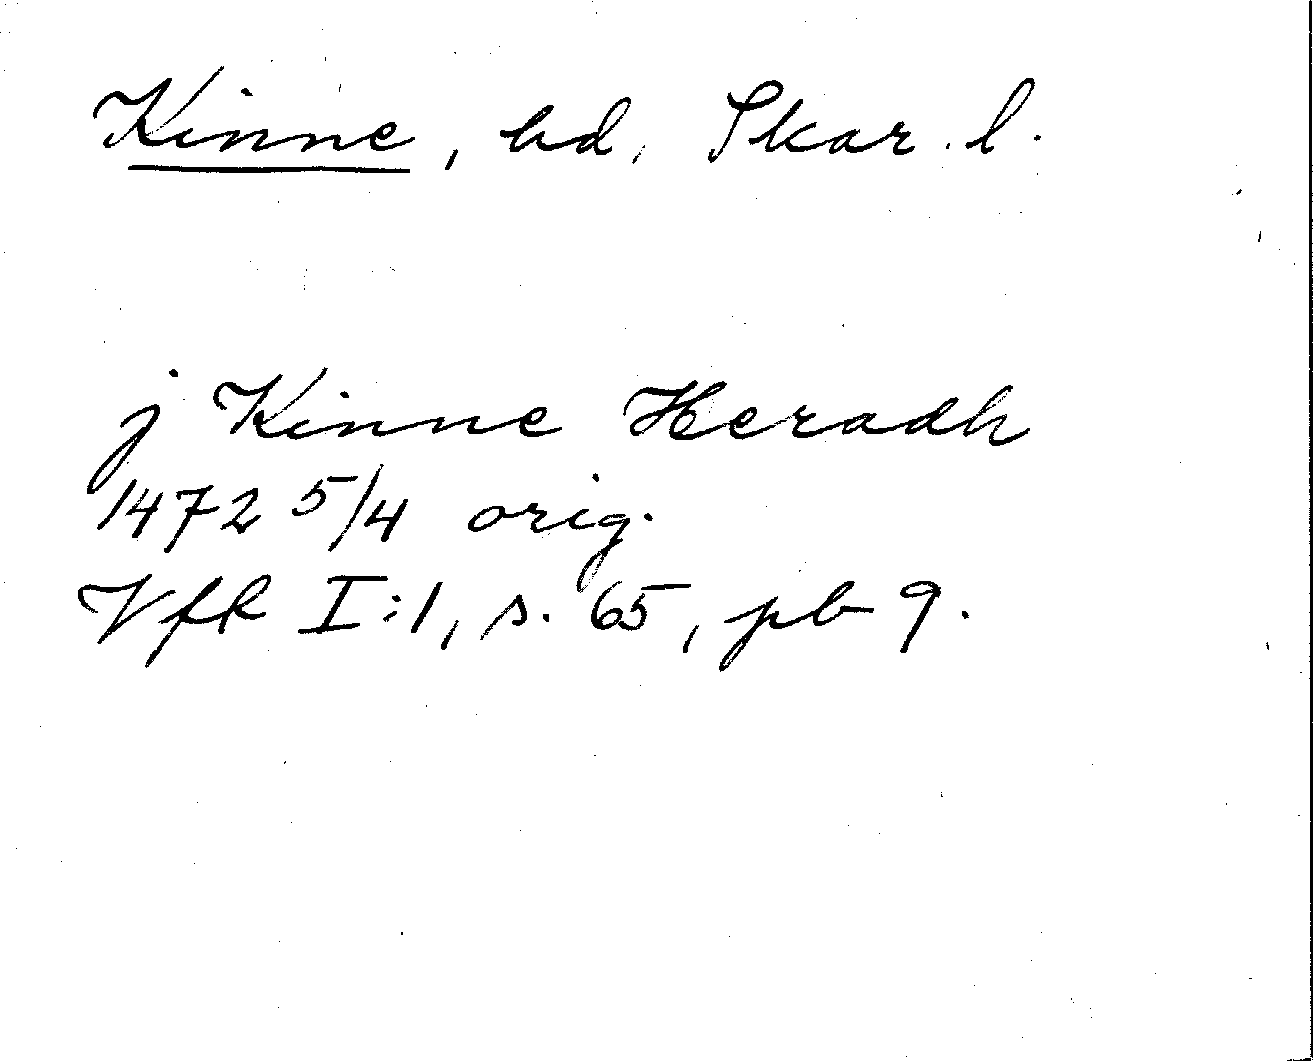 Kinne, hd, Skar. l.
j Kinne Heradh
1472 5/4 orig.
Vfk I:1, s. 65, pb 9.